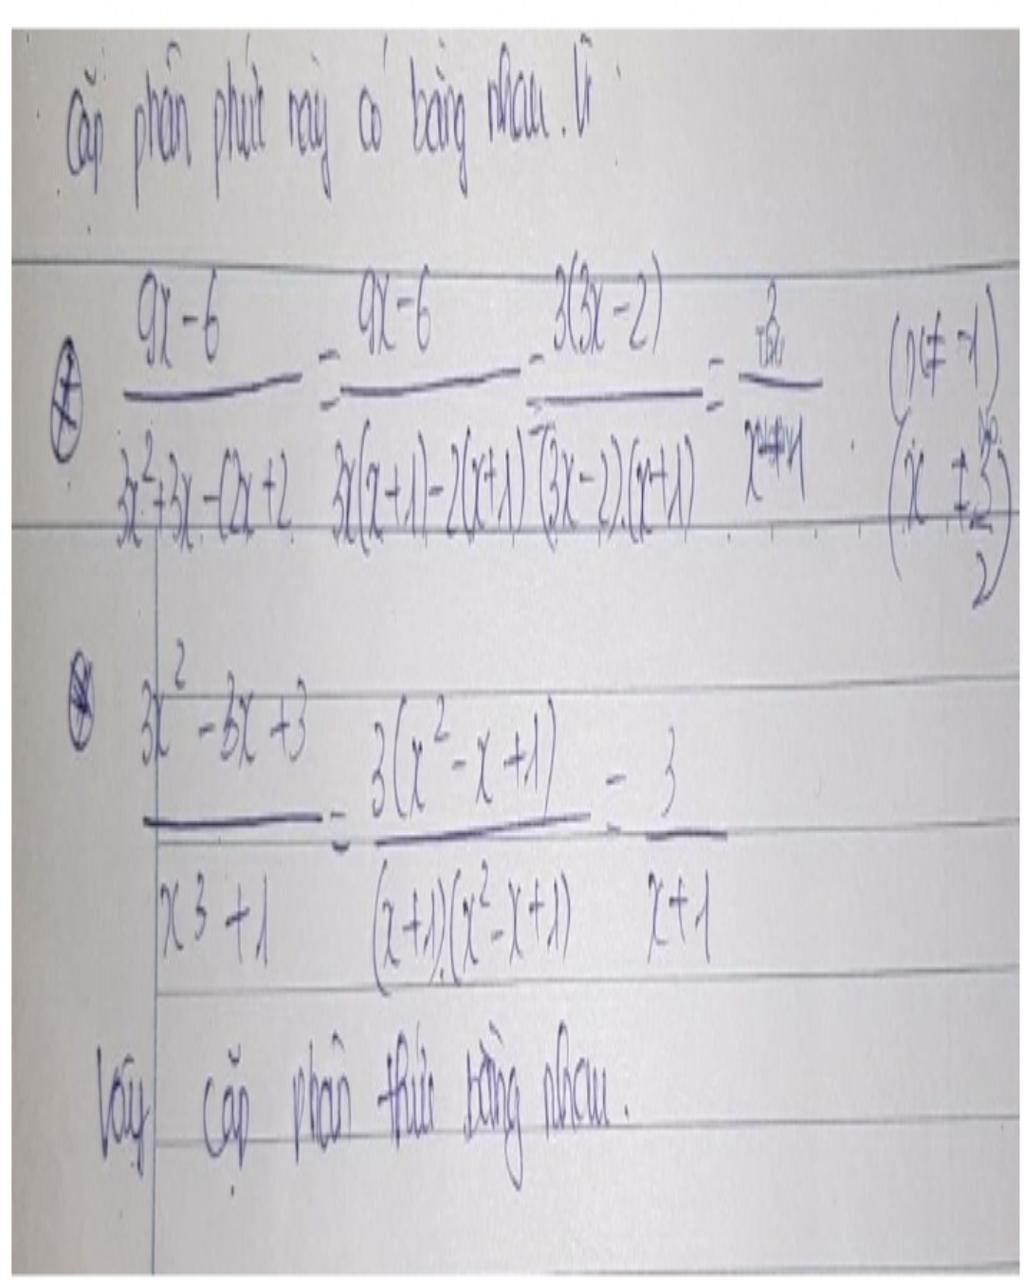 Cặp phân phức này có bằng nhau. Vì
9x - 6 / 3x² + 3x - (2x + 2 = 9x - 6 / 3x(x + 1) - 2(x + 1) = 3(3x - 2) / (3x - 2).(x + 1) = 3 / x + 1 (x ≠ -1)
(x ≠ 3/2)
3x² - 3x + 3 / x3 + 1 = 3(x² - x + 1) / (x + 1).(x² - x + 1) = 3 / x + 1
Vậy cặp phân thức bằng nhau.